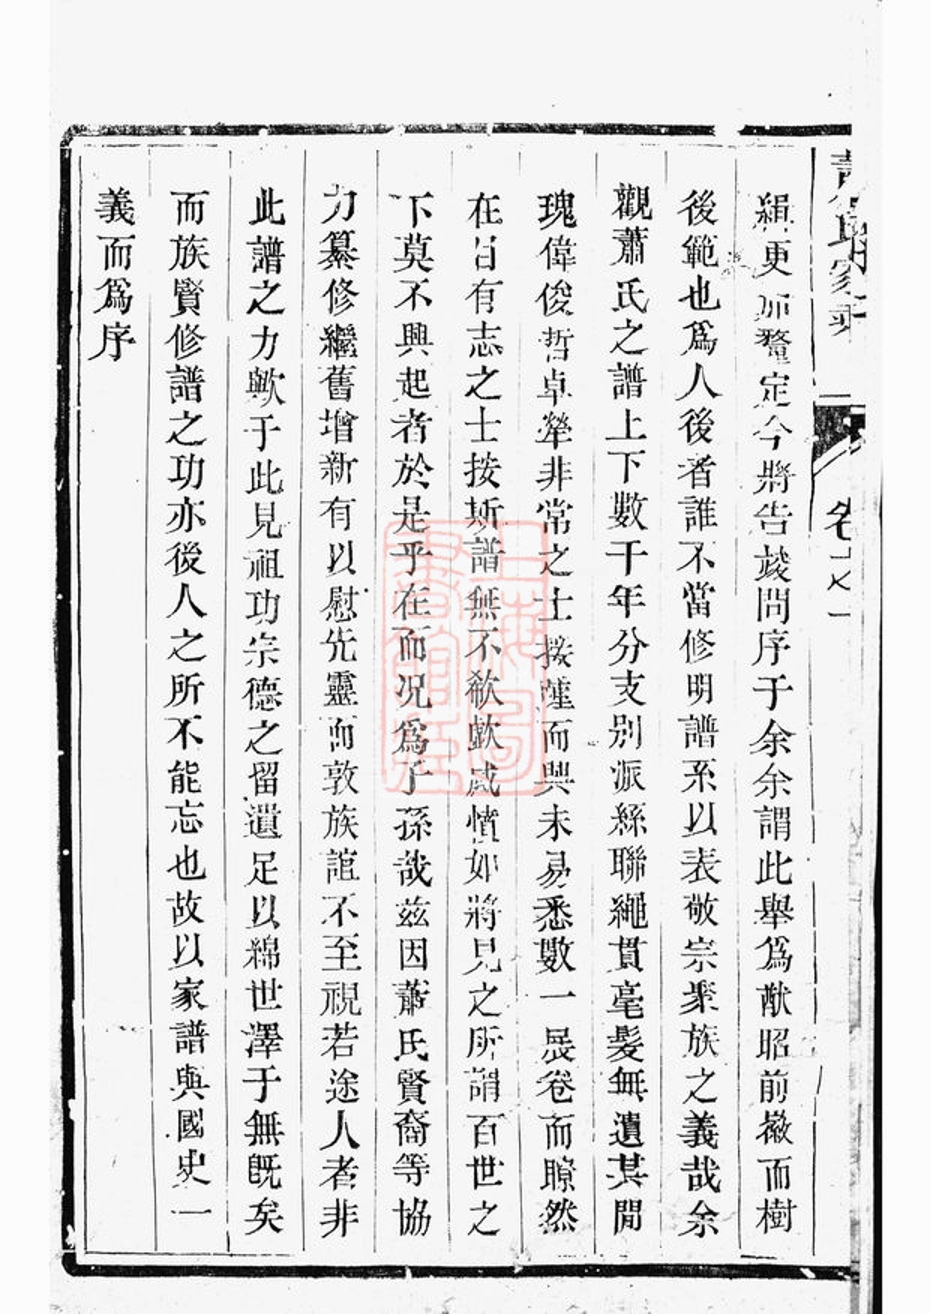 緝更加釐定今將告竣問序于余余謂此舉爲猷昭前徽而樹
後範也爲人後者誰不當修明譜系以表敬宗聚族之義哉余
觀蕭氏之譜上下數千年分支別派絲聯繩貫毫髮無遺其間
瑰偉俊哲卓犖非常之士接踵而興未易悉數一展卷而瞭然
在目有志之士按斯譜無不欷歔感憤如將見之所謂百世之
下莫不興起者於是乎在而况爲子孫哉茲因蕭氏賢裔等協
力纂修繼舊增新有以慰先靈而敦族誼不至視若途人者非
此譜之力歟于此見祖功宗德之留遺足以綿世澤于無既矣
而族賢修譜之功亦後人之所不能忘也故以家譜與國史一
義而爲序
上海圖書館藏